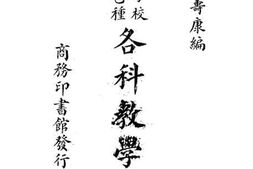 壽康編
校
種
各科教學
商務印書館發行